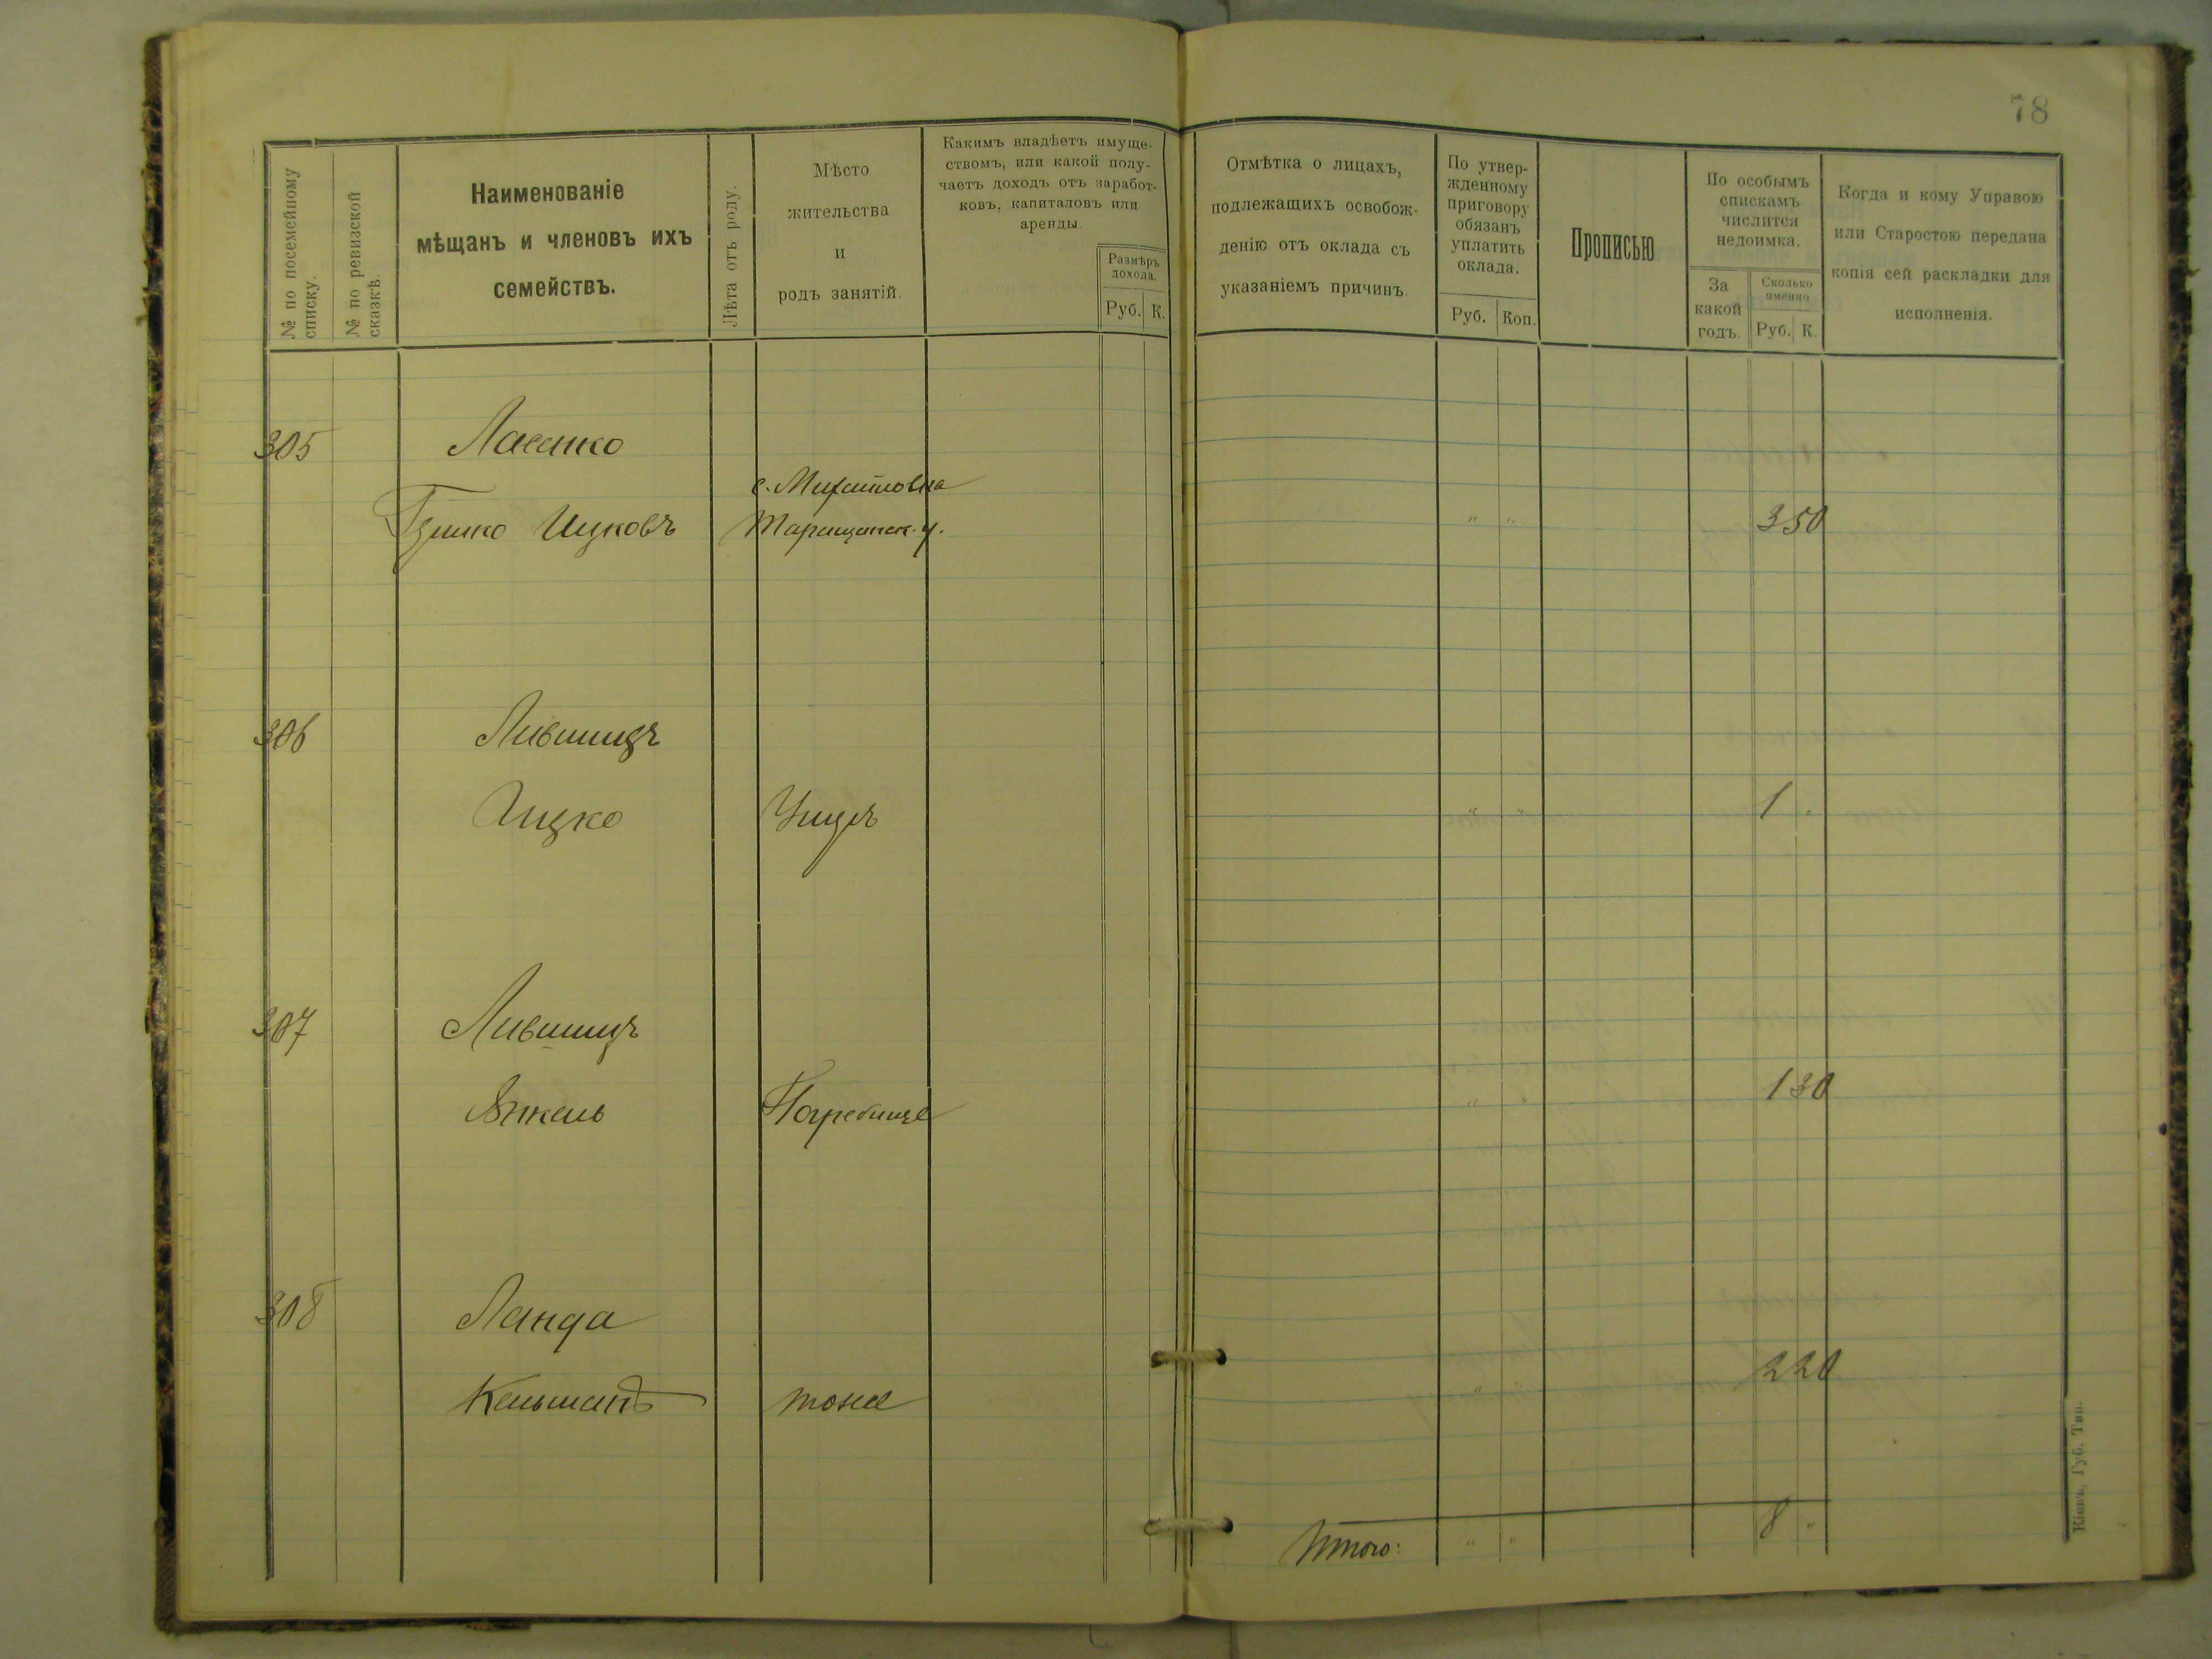 78
№ по посемейному списку.
№ по ревизской сказкѣ.
Наименованіе
мѣщанъ и членовъ ихъ
семействъ.
Лѣта отъ роду.
Мѣсто
жительства
и
родъ занятій.
Какимъ владѣетъ имуще-
ствомъ, или какой полу-
чаетъ доходъ отъ заработ-
ковъ, капиталовъ или
аренды.
Размѣръ
дохода.
Руб. К.
Отмѣтка о лицахъ,
подлежащихъ освобож-
денію отъ оклада съ
указаніемъ причинъ.
По утвер-
жденному
приговору
обязанъ
уплатить
оклада.
Руб. Коп.
Прописью
По особымъ
спискамъ
числится
недоимка.
За
какой
годъ.
Сколько
именно
Руб. К.
Когда и кому Управою
или Старостою передана
копія сей раскладки для
исполненія.
305
с. Михайловка
Ицковъ Таращанск. у. " " 3 50
306 Лившицъ
Ицко " " 1 "
307 Лившицъ
Янкель Погребище " " 1 30
308 Ланда
Кельманъ тоже " " 2 20
Итого: " " 8 "
Кіевъ, Губ. Тип.